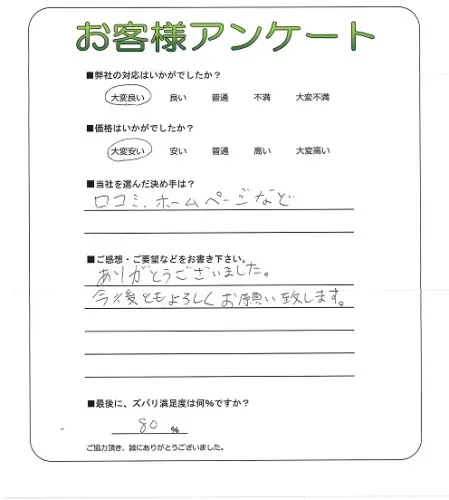 お客様アンケート
■弊社の対応はいかがでしたか？
大変良い 良い 普通 不満 大変不満
■価格はいかがでしたか？
大変安い 安い 普通 高い 大変高い
■当社を選んだ決め手は？
口コミ、ホームページなど
■ご感想・ご要望などをお書き下さい。
ありがとうございました。
今後ともよろしくお願い致します。
■最後に、ズバリ満足度は何%ですか？
80 %
ご協力頂き、誠にありがとうございました。